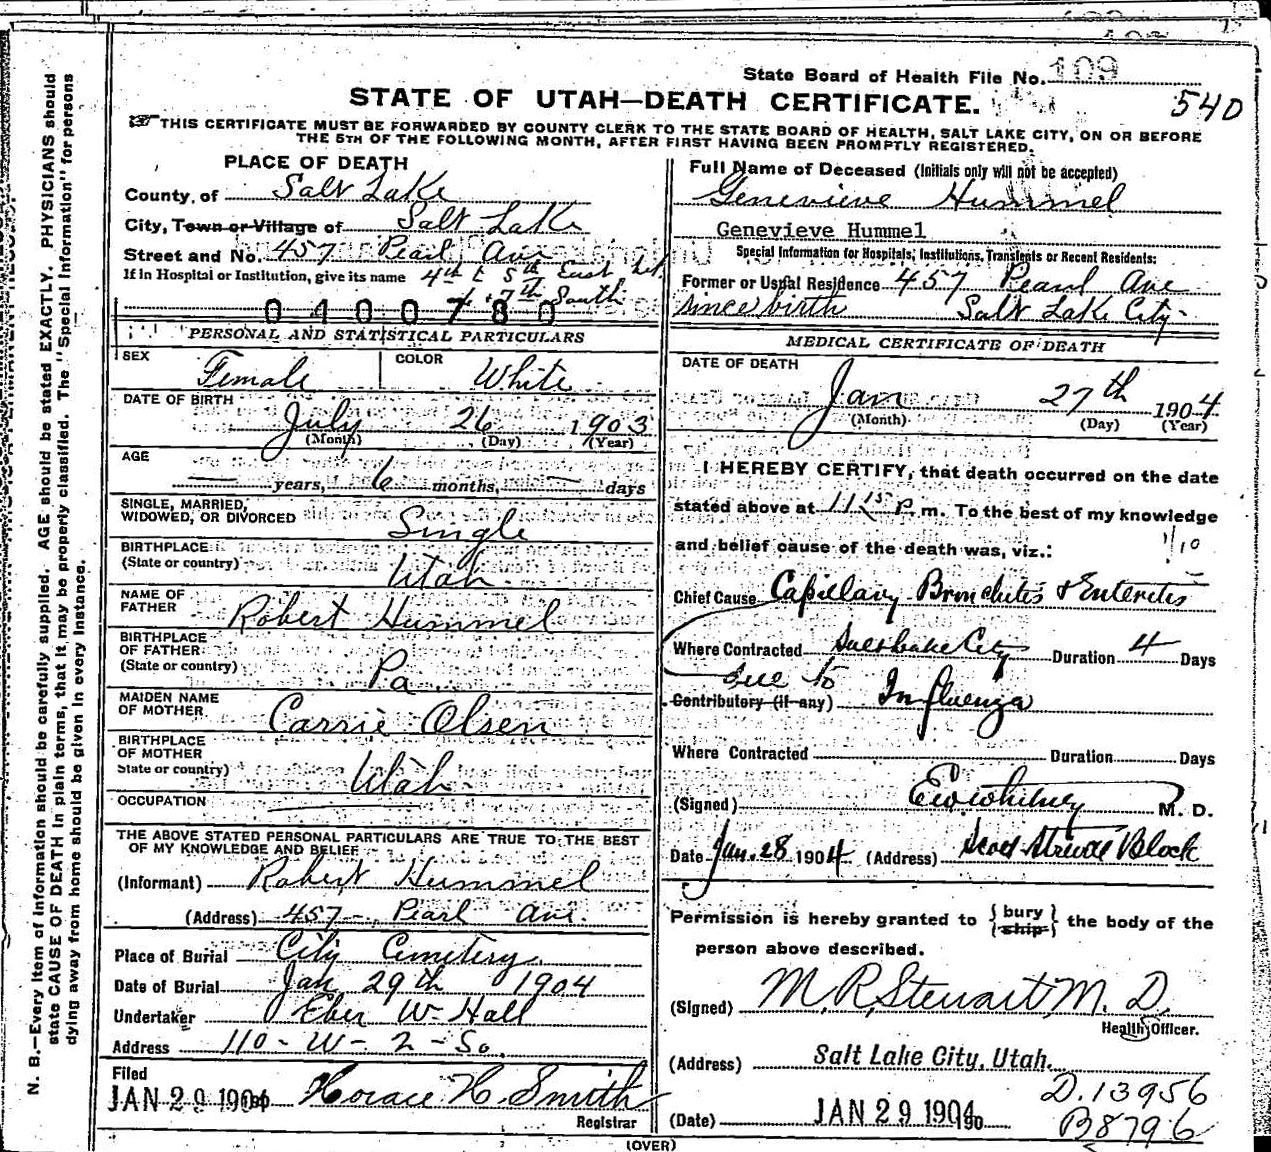 State Board of Health File No. 109
STATE OF UTAH—DEATH CERTIFICATE.
540
THIS CERTIFICATE MUST BE FORWARDED BY COUNTY CLERK TO THE STATE BOARD OF HEALTH, SALT LAKE CITY, ON OR BEFORE
THE 5TH OF THE FOLLOWING MONTH, AFTER FIRST HAVING BEEN PROMPTLY REGISTERED.
PLACE OF DEATH
County of Salt Lake
City, Town or Village of Salt Lake
Street and No. 457 Pearl Ave
If in Hospital or Institution, give its name 4th & 5th East bet.
+ 7th South
0400780
PERSONAL AND STATISTICAL PARTICULARS
SEX Female COLOR White
DATE OF BIRTH
July 26 1903
(Month) (Day) (Year)
AGE
— years, 6 months, — days
SINGLE, MARRIED,
WIDOWED, OR DIVORCED Single
BIRTHPLACE
(State or country) Utah
NAME OF
FATHER Robert Hummel
BIRTHPLACE
OF FATHER
(State or country) Pa
MAIDEN NAME
OF MOTHER Carrie Olsen
BIRTHPLACE
OF MOTHER
State or country) Utah
OCCUPATION
THE ABOVE STATED PERSONAL PARTICULARS ARE TRUE TO THE BEST
OF MY KNOWLEDGE AND BELIEF
(Informant) Robert Hummel
(Address) 457 Pearl Ave.
Place of Burial City Cemetery
Date of Burial Jan 29th 1904
Undertaker Eber W Hall
Address 110 - W - 2 - So.
Filed
JAN 29 1904 Horace H. Smith
Registrar
Full Name of Deceased (Initials only will not be accepted)
Genevieve Hummel
Genevieve Hummel
Special Information for Hospitals, Institutions, Transients or Recent Residents:
Former or Usual Residence 457 Pearl Ave
since birth Salt Lake City
MEDICAL CERTIFICATE OF DEATH
DATE OF DEATH
Jan 27th 1904
(Month) (Day) (Year)
I HEREBY CERTIFY, that death occurred on the date
stated above at 11 15 P. m. To the best of my knowledge
and belief cause of the death was, viz.:
Chief Cause Capillary Bronchitis & Enteritis
Where Contracted Salt Lake City Duration 4 Days
due to
Contributory (if any) Influenza
Where Contracted Duration Days
(Signed) E W Whitney M. D.
Date Jan. 28 1904 (Address) Block
Permission is hereby granted to { bury ship } the body of the
person above described.
(Signed) M. R. Stewart, M. D.
Health Officer.
(Address) Salt Lake City, Utah.
D. 13956
(Date) JAN 29 1904 B 8796
(OVER)
N. B.—Every item of information should be carefully supplied. AGE should be stated EXACTLY. PHYSICIANS should
state CAUSE OF DEATH in plain terms, that it may be properly classified. The "Special Information" for persons
dying away from home should be given in every instance.